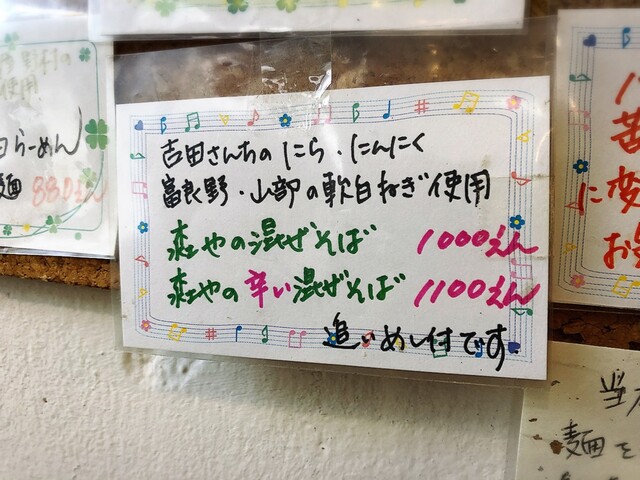 吉田さんちのにら・にんにく
富良野・山部の軟白ねぎ使用
やの混ぜそば 1000えん
やの辛い混ぜそば 1100えん
追いめし付です
使用
らーめん
麺 880えん
に変
当
麺を